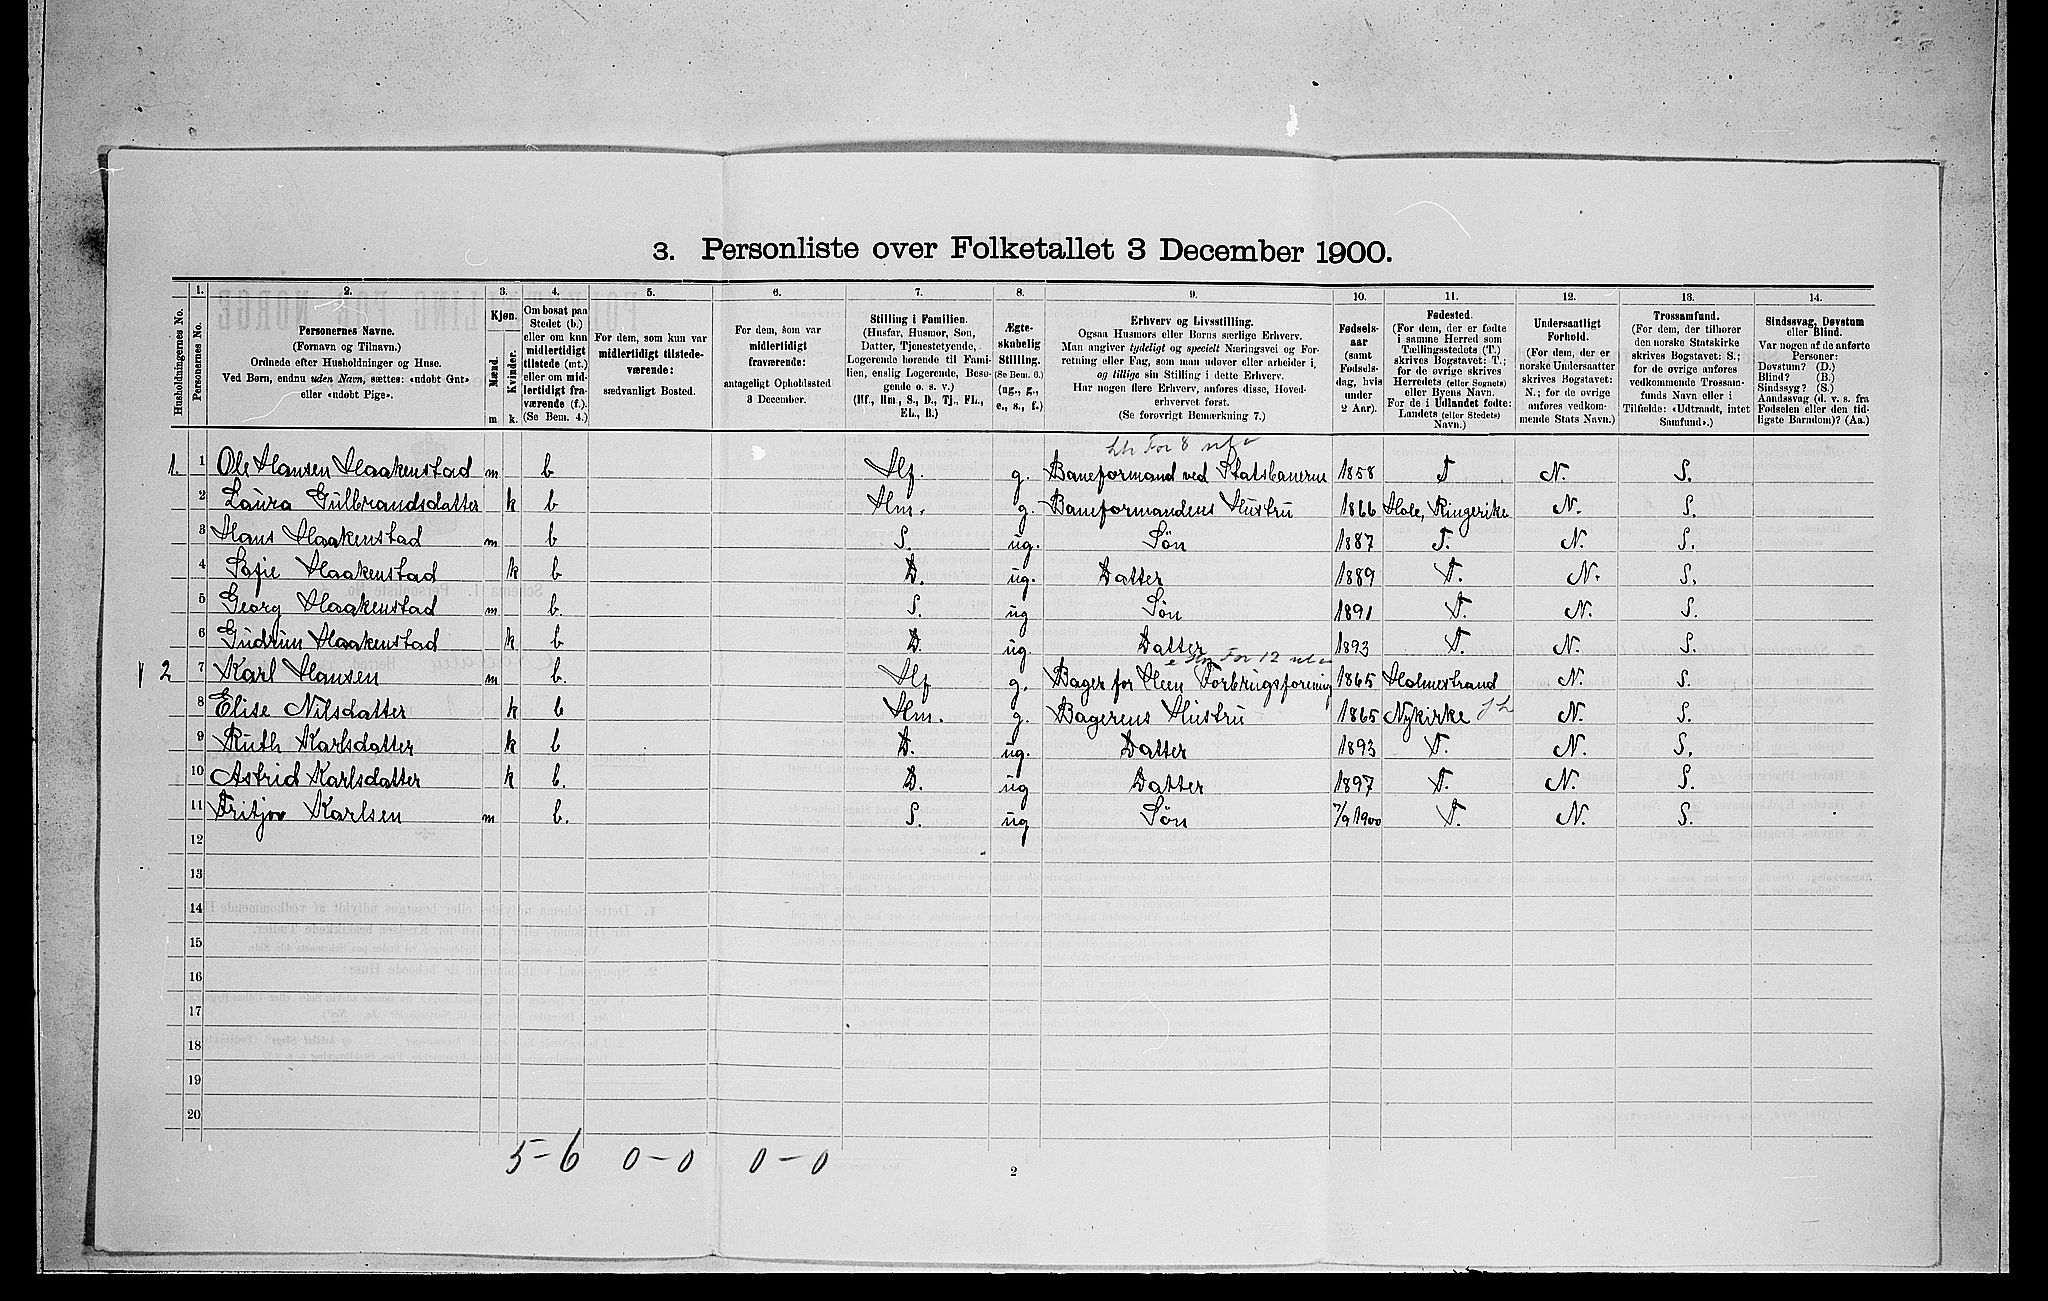 3. Personliste over Folketallet 3 December 1900.
1. 2. 3. 4. 5. 6. 7. 8. 9. 10. 11. 12. 13. 14.
Husholdningernes No.
Personernes No.
Personernes Navne.
(Fornavn og Tilnavn.)
Ordnede efter Husholdninger og Huse.
Ved Børn, endnu uden Navn, sættes: «udøbt Gut»
eller «udøbt Pige».
Kjøn.
Mænd.
Kvinder.
m k.
Om bosat paa
Stedet (b.)
eller om kun
midlertidigt
tilstede (mt.)
eller om mid-
lertidigt fra-
værende (f.).
(Se Bem. 4.)
For dem, som kun var
midlertidigt tilstede-
værende:
sædvanligt Bosted.
For dem, som var
midlertidigt
fraværende:
antageligt Opholdssted
3 December.
Stilling i Familien.
(Husfar, Husmor, Søn,
Datter, Tjenestetyende,
Logerende hørende til Fami-
lien, enslig Logerende, Besø-
gende o. s. v.)
(Hf., Hm., S., D., Tj., FL.,
EL., B.)
Ægte-
skabelig
Stilling.
(Se Bem. 6.)
(ug., g.,
e., s., f.)
Erhverv og Livsstilling.
Ogsaa Husmors eller Børns særlige Erhverv.
Man angiver tydeligt og specielt Næringsvei og For-
retning eller Fag, som man udøver eller arbeider i,
og tillige sin Stilling i dette Erhverv.
Har nogen flere Erhverv, anføres disse, Hoved-
erhvervet først.
(Se forøvrigt Bemærkning 7.)
Fødsels-
aar
(samt
Fødsels-
dag, hvis
under
2 Aar).
Fødested.
(For dem, der er fødte
i samme Herred som
Tællingsstedets (T.)
skrives Bogstavet: T.;
for de øvrige skrives
Herredets (eller Sognets)
eller Byens Navn.
For de i Udlandet fødte:
Landets (eller Stedets)
Navn.)
Undersaatligt
Forhold.
(For dem, der er
norske Undersaatter
skrives Bogstavet:
N.; for de øvrige
anføres vedkom-
mende Stats Navn.)
Trossamfund.
(For dem, der tilhører
den norske Statskirke
skrives Bogstavet: S.;
for de øvrige anføres
vedkommende Trossam-
funds Navn eller i
Tilfælde: «Udtraadt, intet
Samfund».)
Sindssvag, Døvstum
eller Blind.
Var nogen af de anførte
Personer:
Døvstum? (D.)
Blind? (B.)
Sindssyg? (S.)
Aandssvag (d. v. s. fra
Fødselen eller den tid-
ligste Barndom)? (Aa.)
1. 1 Ole Hansen Haakenstad m b Hf. g. Baneformand ved Statsbanerne 1858 T N. S.
2 Laura Gulbrandsdatter k b Hm. g. Baneformandens Hustru 1866 Hole, Ringerike N. S.
3 Hans Haakenstad m b S. ug. Søn 1887 T. N. S.
4 Sofie Haakenstad k b D. ug. Datter 1889 T. N. S.
5 Georg Haakenstad m b. S. ug Søn 1891 T. N. S.
6 Gudrun Haakenstad k b D. ug. Datter 1893 T. N. S.
2 7 Karl Hansen m b. Hf g. Bager for Heen Forbrugsforening 1865 Holmestrand N. S.
8 Elise Nilsdatter k b Hm. g. Bagerens Hustru 1865 Nykirke N. S.
9 Ruth Karlsdatter k b D. ug. Datter 1893 T. N. S.
10 Astrid Karlsdatter k b. D. ug Datter 1897 T. N. S.
11 Fritjov Karlsen m b. S. ug Søn 7/9 1900 T. N. S.
12
13
14
15
16
17
18
19
20
5-6 0-0 0-0
2